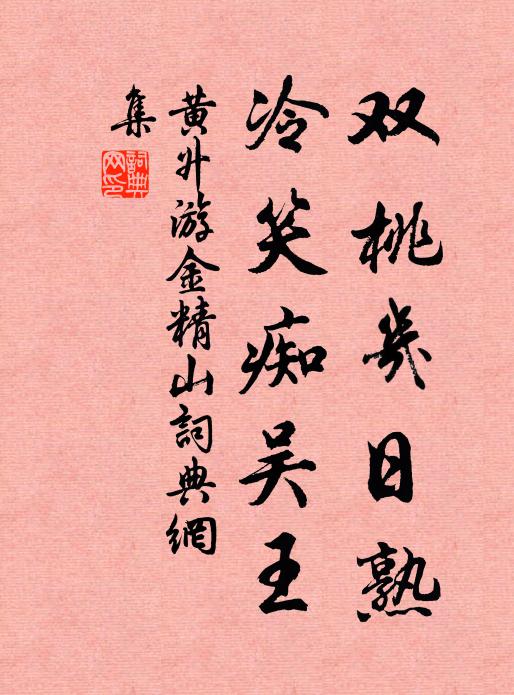 双桃几日熟
冷笑痴吴王
黄升游金精山詞典網
集
詞典网印